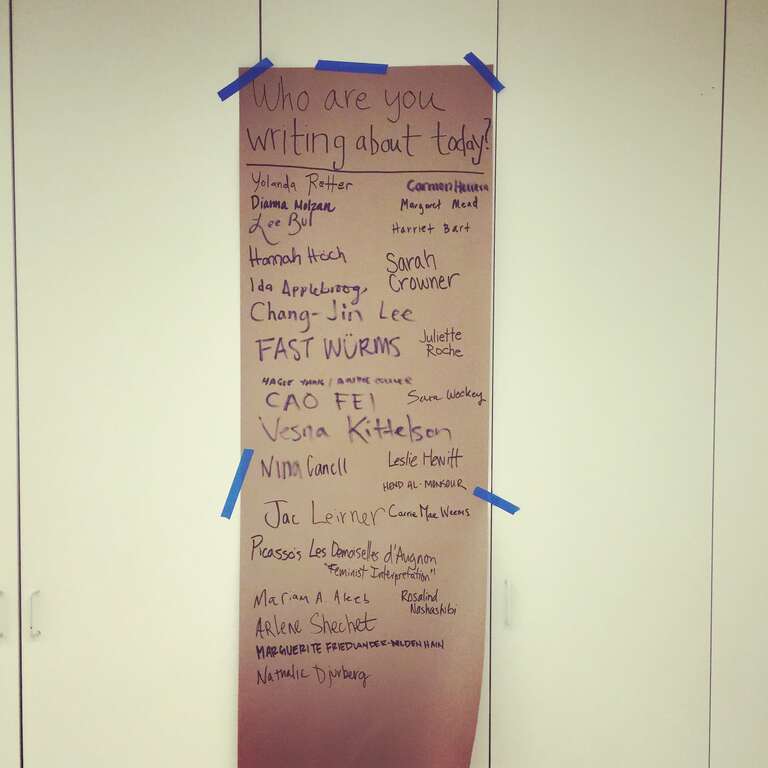 Who are you
writing about today?
Yolanda Retter
Carmen Herrera
Dianna Molzan
Margaret Mead
Lee Bul
Harriet Bart
Hannah Höch
Sarah
Crowner
Ida Applebroog
Chang-Jin Lee
FAST WÜRMS
Juliette
Roche
CAO FEI
Sara Wookey
Vesna Kittelson
Nina Canell
Leslie Hewitt
HEND AL-MANSOUR
Jac Leirner
Carrie Mae Weems
Picasso's Les Demoiselles d'Avignon
"Feminist Interpretation"
Mariam A.
Rosalind
Nashashibi
ARLENE Shechet
MARGUERITE FRIEDLANDER-WILDENHAIN
Nathalie Djurberg